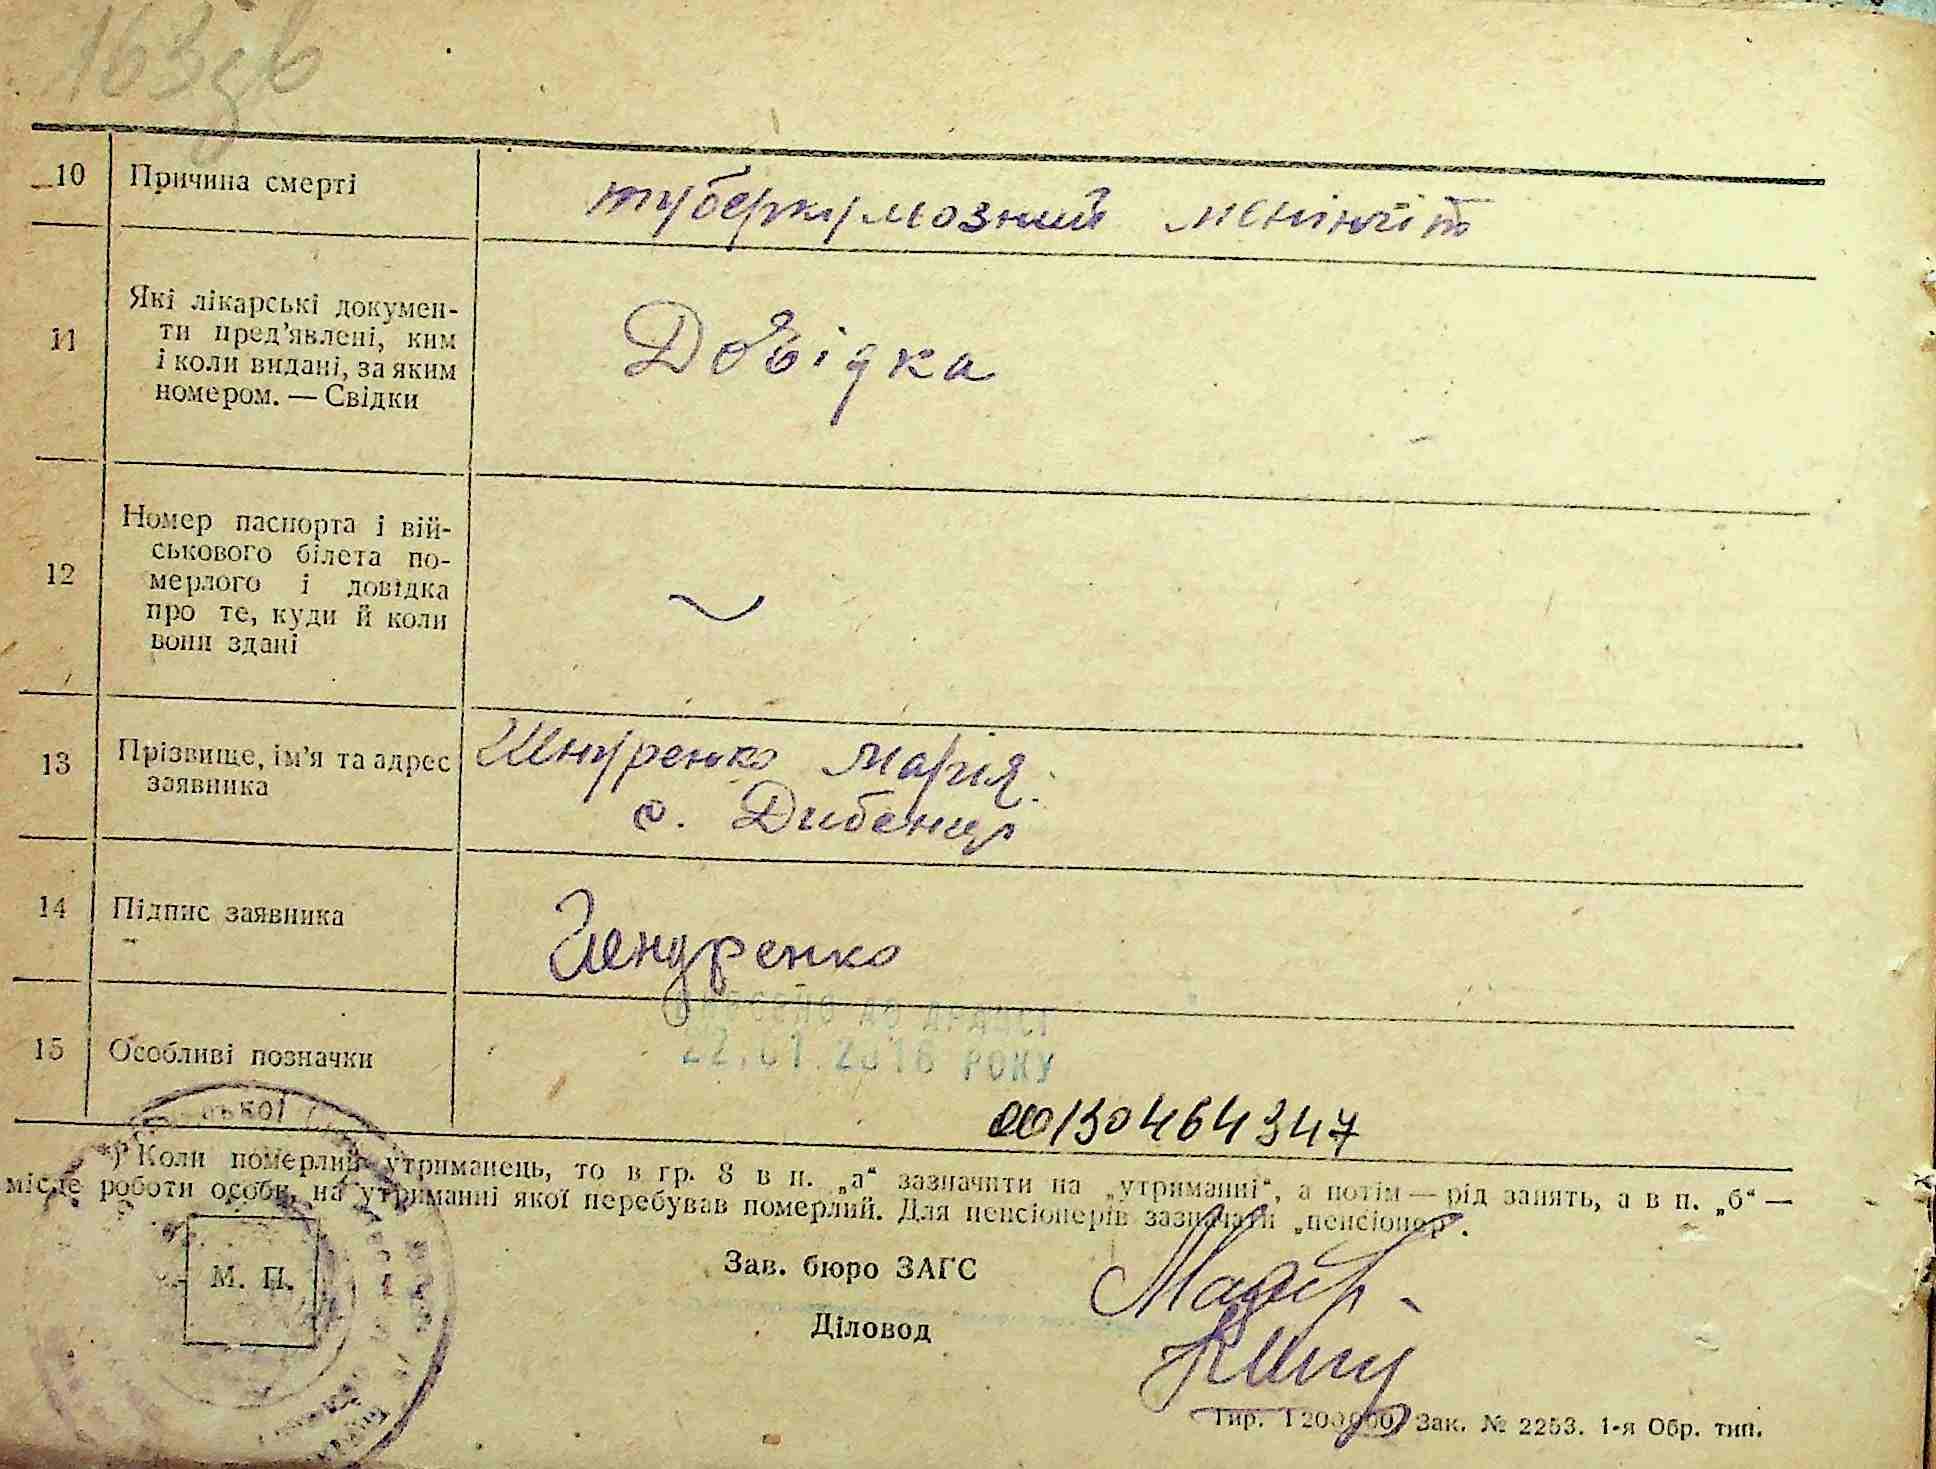 163зв
10 Причина смерті туберкульозний менінгіт
11 Які лікарські докумен-
ти пред'явлені, ким
і коли видані, за яким
номером. — Свідки
Довідка
12 Номер паспорта і вій-
ськового білета по-
мерлого і довідка
про те, куди й коли
вони здані
13 Прізвище, ім'я та адрес
заявника
Шнуренко Марія.
с. Дибенці
14 Підпис заявника Шнуренко
15 Особливі позначки
ВНЕСЕНО ДО ДРАЦСГ
22.01.2016 РОКУ
00130464347
*) Коли померлий утриманець, то в гр. 8 в п. „а“ зазначити на „утриманні“, а потім — рід занять, а в п. „б“ —
місце роботи особи, на утриманні якої перебував померлий. Для пенсіонерів зазначати „пенсіонер“.
М. П.
Зав. бюро ЗАГС
Діловод
Тир. 1200000 Зак. № 2253. 1-я Обр. тип.